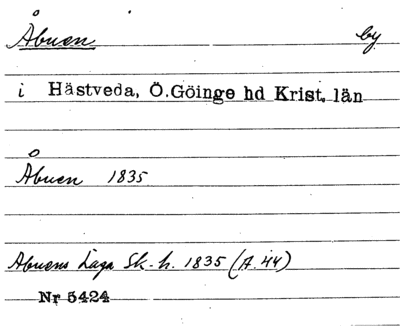 Åbuen by
i Hästveda, Ö.Göinge hd Krist. län
Åbuen 1835
Abuens Laga Sk.-h. 1835 (A.44)
Nr 5424